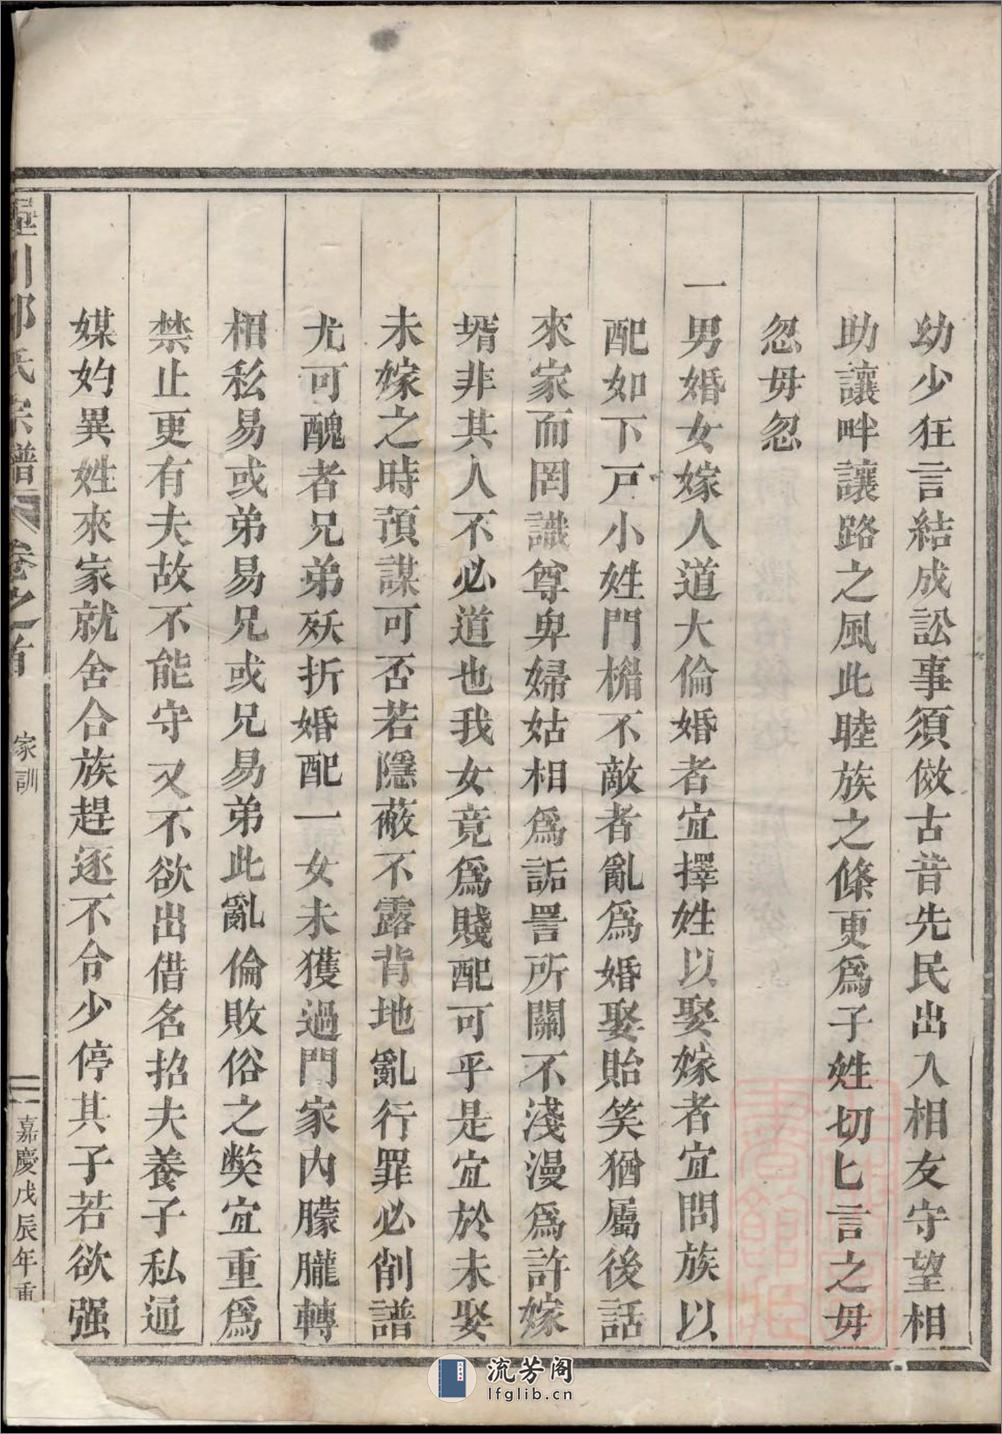 幼少狂言結成訟事須倣古昔先民出入相友守望相
助讓畔讓路之風此睦族之條更爲子姓切匕言之毋
忽毋忽
一男婚女嫁人道大倫婚者宜擇姓以娶嫁者宜問族以
配如下戸小姓門楣不敵者亂爲婚娶貽笑猶屬後話
來家而罔識尊卑婦姑相爲詬詈所關不淺漫爲許嫁
壻非其人不必道也我女竟爲賤配可乎是宜於未娶
未嫁之時預謀可否若隱蔽不露背地亂行罪必削譜
尤可醜者兄弟殀折婚配一女未獲過門家內朦朧轉
相私易或弟易兄或兄易弟此亂倫敗俗之獘宜重爲
禁止更有夫故不能守又不欲出借名招夫養子私通
媒妁異姓來家就舍合族趕逐不合少停其子若欲强
川 氏宗譜 卷之首 家訓 嘉慶戊辰年重
流芳阁
lfglib.cn